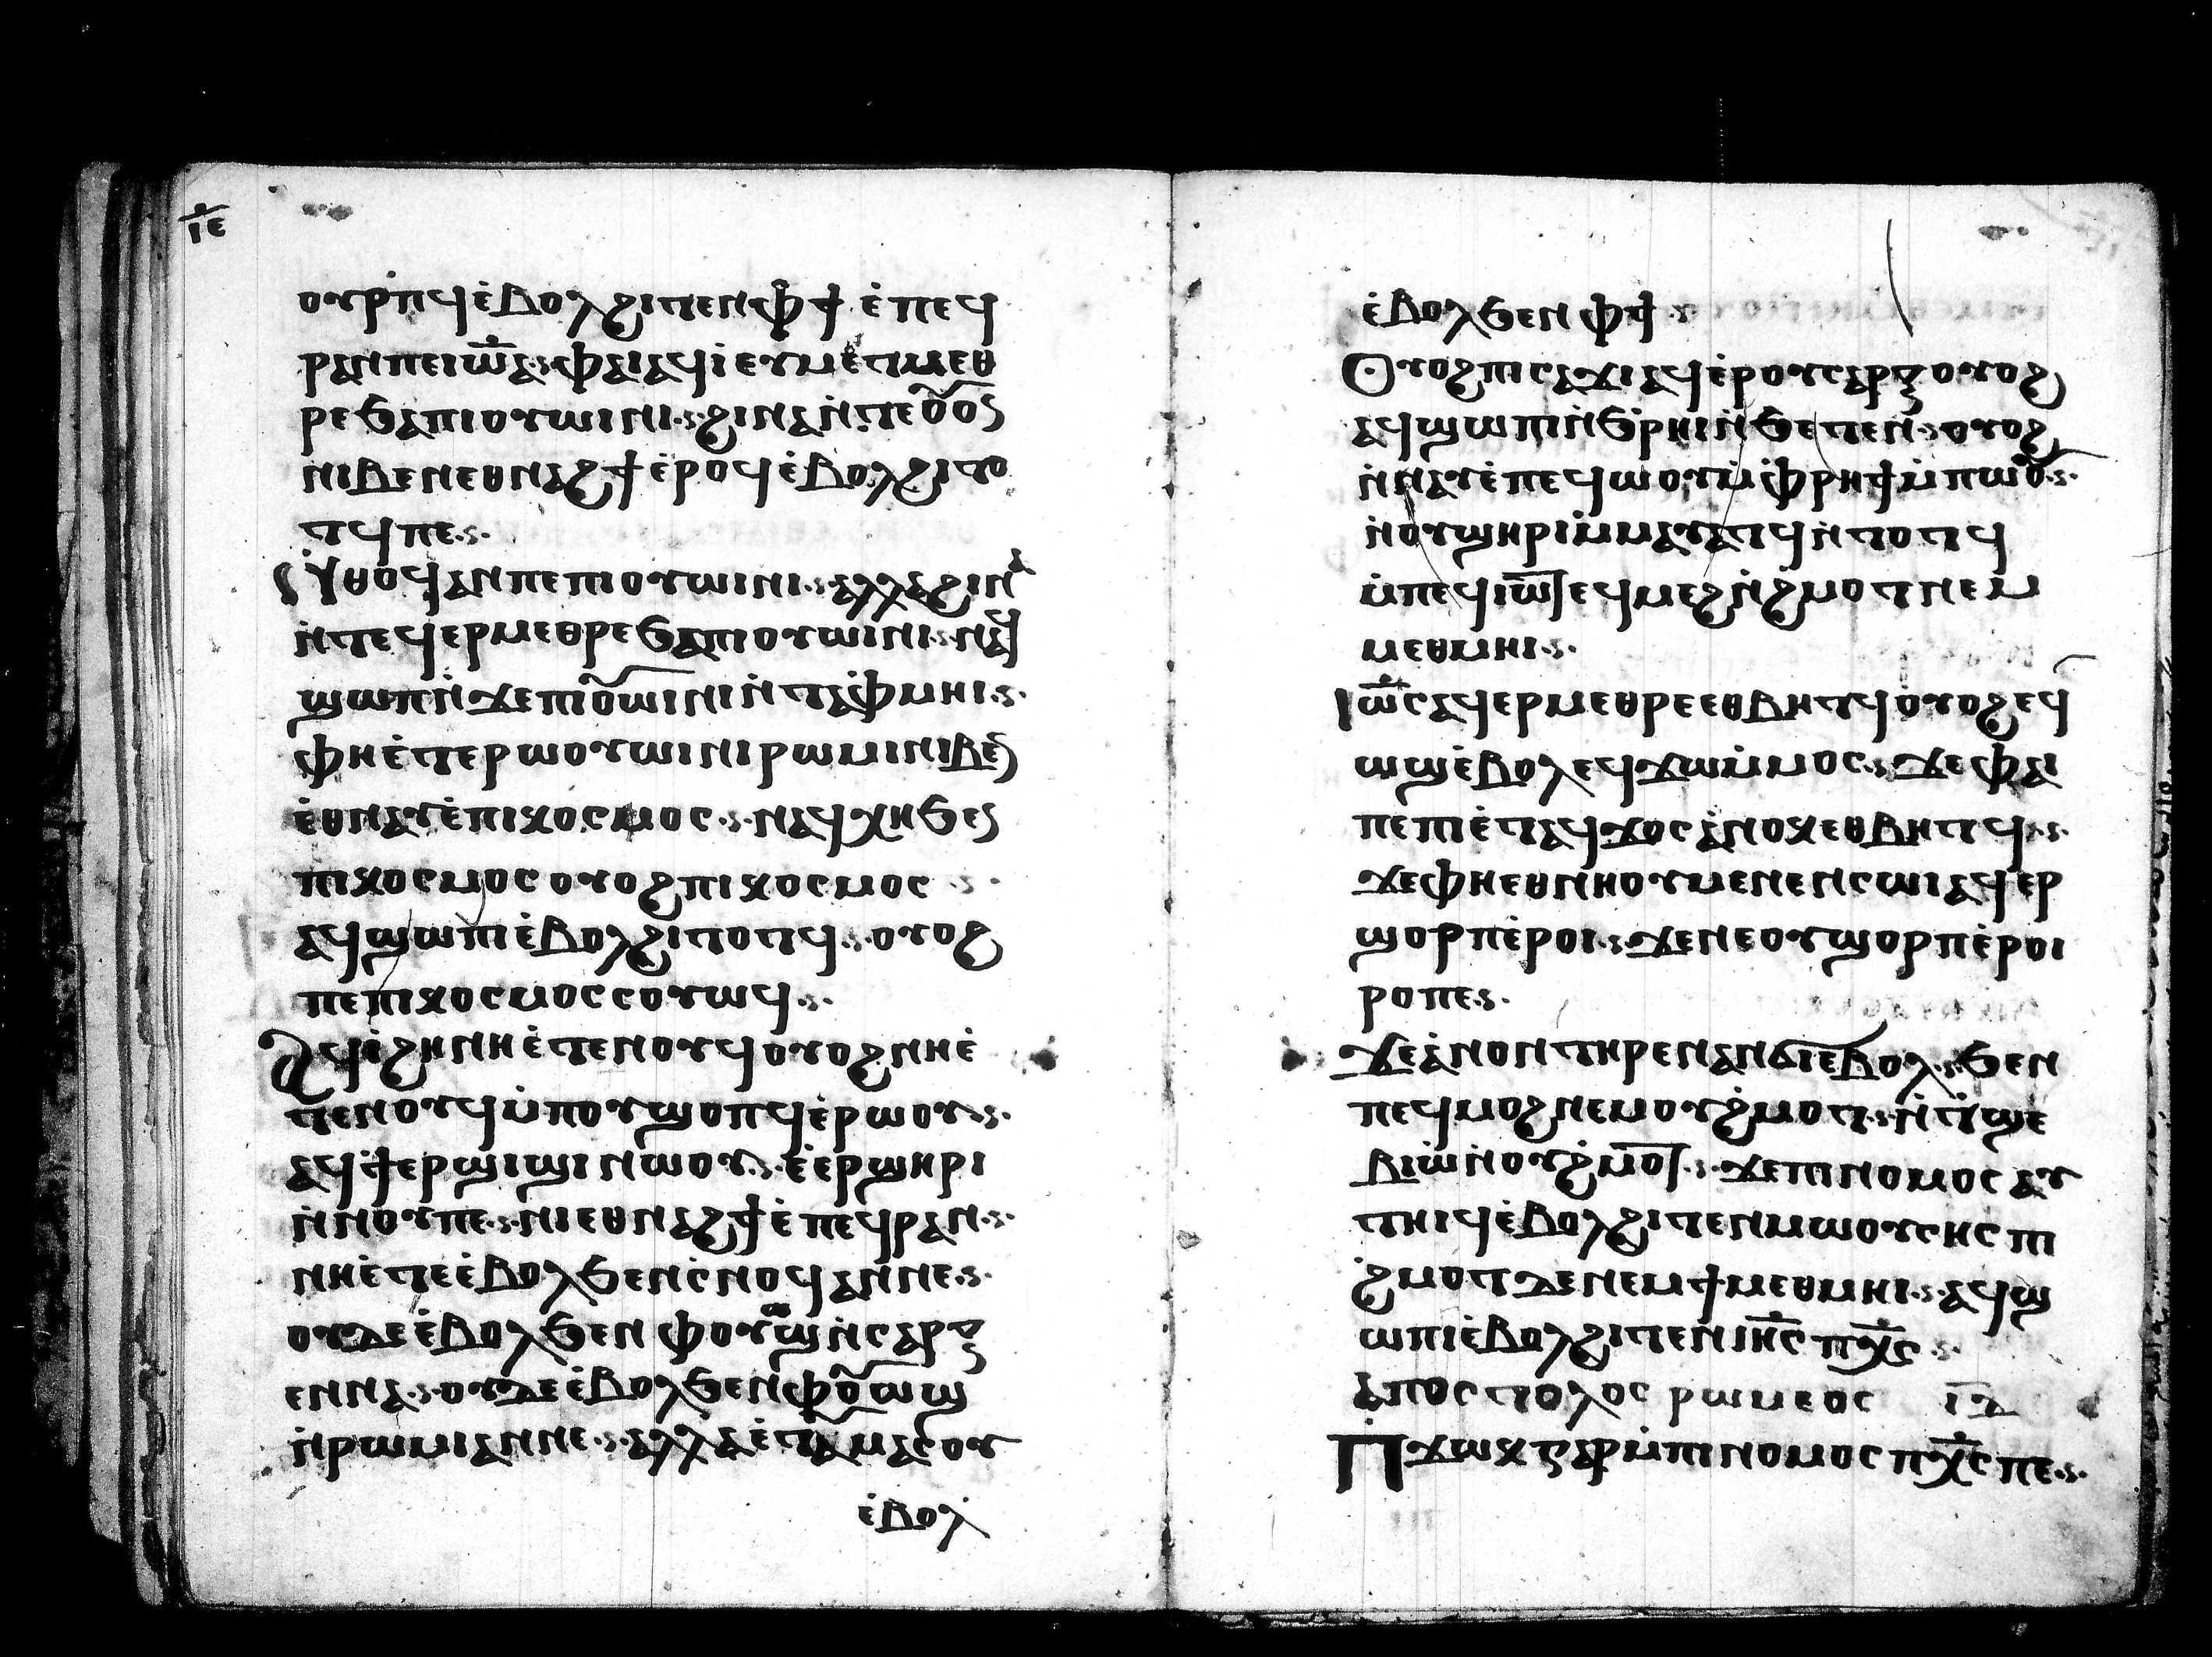 ⲓⲉ
ⲟⲩⲣⲡϥ ⲉ̀ⲃⲟⲗ ϩⲓⲧⲉⲛ ⲫϯ ⲉ̀ⲡⲉϥ
ⲣⲁⲛ ⲡⲉ ⲓⲱ̅ⲁ ⲫⲁⲓ ⲁϥⲓ̀ ⲉⲩⲙⲉⲧⲙⲉⲑ
ⲣⲉ ϧⲁ ⲡⲓⲟⲩⲱⲓⲛⲓ ϩⲓⲛⲁ ⲛ̀ⲧⲉ ⲟ̅ⲟⲥ
ⲛⲓⲃⲉⲛ ⲉⲑⲛⲁϩϯ ⲉ̀ⲣⲟϥ ⲉ̀ⲃⲟⲗ ϩⲓⲧⲟ
ⲧϥ ⲡⲉ
ⲛⲑⲟϥ ⲁⲛ ⲡⲉ ⲡⲓⲟⲩⲱⲓⲛⲓ ⲁⲗⲗⲁ ϩⲓⲛⲁ
ⲛ̀ⲧⲉϥⲉⲣⲙⲉⲑⲣⲉ ϧⲁ ⲡⲓⲟⲩⲱⲓⲛⲓ ⲛⲁϥ
ϣⲱⲡ ⲛ̀ϫⲉ ⲡⲓⲟ̅ⲱⲓⲛⲓ ⲛ̀ⲧⲁⲫⲙⲏⲓ
ⲫⲏ ⲉ̀ⲧⲉⲣⲱⲟⲩⲱⲓⲛⲓ ⲣⲱⲙⲓ ⲛⲓⲃⲉ
ⲉ̀ⲑⲛⲁⲩ ⲉ̀ⲡⲓⲕⲟⲥⲙⲟⲥ ⲛⲁϥⲭⲏ ϧⲉⲛ
ⲡⲓⲕⲟⲥⲙⲟⲥ ⲟⲩⲟϩ ⲡⲓⲕⲟⲥⲙⲟⲥ
ⲁϥϣⲱⲡⲓ ⲉ̀ⲃⲟⲗ ϩⲓⲧⲟⲧϥ ⲟⲩⲟϩ
ⲡⲉ ⲡⲓⲕⲟⲥⲙⲟⲥ ⲥⲟⲩⲱϥ
ⲁϥⲓ̀ ϩⲏ ⲛⲏ ⲉ̀ⲧⲉⲛⲟⲩϥ ⲟⲩⲟϩ ⲛⲏ ⲉ̀
ⲧⲉⲛⲟⲩϥ ⲙ̀ⲡⲟⲩϣⲟⲡϥ ⲉ̀ⲣⲱⲟⲩ
ⲁϥϯ ⲉⲣϣⲓϣⲓ ⲛⲱⲟⲩ ⲉ̀ⲉⲣϣⲏⲣⲓ
ⲛ̀ⲛⲟⲩ ⲡⲉ ⲛⲓⲉⲑⲛⲁϩϯ ⲉ̀ⲡⲉϥⲣⲁⲛ
ⲛⲏ ⲉ̀ⲧⲉ ⲉ̀ⲃⲟⲗ ϧⲉⲛ ⲥ̀ⲛⲟϥ ⲁⲛ ⲛⲉ
ⲟⲩⲇⲉ ⲉ̀ⲃⲟⲗ ϧⲉⲛ ⲫⲟⲩⲱϣ ⲛ̀ⲥⲁⲣⲝ
ⲉⲛⲛⲁ ⲟⲩⲇⲉ ⲉ̀ⲃⲟⲗ ϧⲉⲛ ⲫⲟ̅ⲱϣ
ⲛ̀ⲣⲱⲙⲓ ⲁⲛ ⲛⲉ ⲁⲗⲗⲁ ⲉ̀ⲧⲁⲩⲙⲁⲥⲟⲩ
ⲉ̀ⲃⲟⲗ
ⲉ̀ⲃⲟⲗ ϧⲉⲛ ⲫϯ
ⲟⲩⲟϩ ⲡⲓⲥⲁϫⲓ ⲁϥⲉ̀ⲣ ⲟⲩⲥⲁⲣⲝ ⲟⲩⲟϩ
ⲁϥϣⲱⲡⲓ ⲛ̀ϧⲣⲏⲓ ⲛ̀ϧⲉⲧⲉⲛ ⲟⲩⲟϩ
ⲛ̀ⲛⲁⲩ ⲉ̀ⲡⲉϥⲱⲟⲩ ⲙ̀ⲫⲣⲏϯ ⲙ̀ⲡⲱⲟ̅
ⲛ̀ⲟⲩϣⲏⲣⲓ ⲙ̀ⲙⲁⲩⲁⲧϥ ⲛ̀ⲧⲟⲧϥ
ⲙ̀ⲡⲉϥⲓⲱ̅ⲧ ⲉϥⲙⲉϩ ⲛ̀ϩⲙⲟⲧ ⲛⲉⲙ
ⲙⲉⲑⲙⲏⲓ
ⲓⲱ̅ⲥ ⲁϥⲉⲣⲙⲉⲑⲣⲉ ⲉⲑⲃⲏⲧϥ ⲟⲩⲟϩ ⲉϥ
ⲱϣ ⲉ̀ⲃⲟⲗ ⲉϥϫⲱ ⲙ̀ⲙⲟⲥ ϫⲉ ⲫⲁⲓ
ⲡⲉ ⲡⲓⲉ̀ⲧⲁϥϫⲟⲥ ⲁ̀ⲛⲟⲕ ⲉⲑⲃⲏⲧϥ
ϫⲉ ⲫⲏ ⲉⲑⲛⲏⲟⲩ ⲙⲉⲛⲉⲛⲥⲱⲓ ⲁϥⲉⲣ
ϣⲟⲣⲡ ⲉ̀ⲣⲟⲓ ϫⲉ ⲛⲉ ⲟⲩϣⲟⲣⲡ ⲉ̀ⲣⲟⲓ
ⲣⲟ ⲡⲉ
ϫⲉ ⲁ̀ⲛⲟⲛ ⲧⲏⲣⲉⲛ ⲁⲛϭⲓ ⲉⲃⲟⲗ ϧⲉⲛ
ⲡⲉϥⲙⲟϩ ⲛⲉⲙ ⲟⲩϩ̀ⲙⲟⲧ ⲛ̀ⲧϣⲉ
ⲃⲓⲱ̀ ⲛ̀ⲟⲩϩ̀ⲙⲟ̅ⲧ ϫⲉ ⲡⲓⲛⲟⲙⲟⲥ ⲁⲩ
ⲧⲏⲓϥ ⲉ̀ⲃⲟⲗ ϩⲓⲧⲉⲛ ⲙⲱⲟⲩⲥⲏⲥ ⲡⲓ
ϩ̀ⲙⲟⲧ ⲇⲉ ⲛⲉⲙ ϯⲙⲉⲑⲙⲏⲓ ⲁϥϣ
ⲱⲡⲓ ⲉ̀ⲃⲟⲗ ϩⲓⲧⲉⲛ ⲓⲏ̅ⲥ ⲡⲭ̅ⲥ
ⲁⲡⲟⲥⲧⲟⲗⲟⲥ ⲣⲱⲙⲉⲟⲥ ⲓⲇ
ⲡϫⲱⲕ ⲅⲁⲣ ⲙ̀ⲡⲓⲛⲟⲙⲟⲥ ⲡⲭ̅ⲥ ⲡⲉ